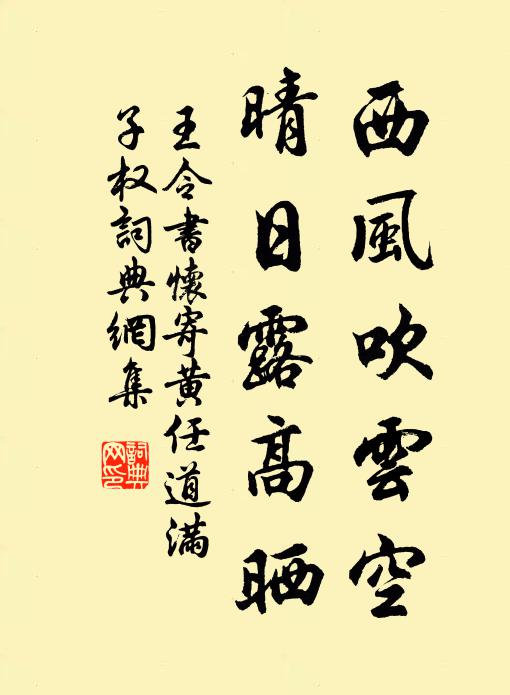 西風吹雲空
晴日露高晒
王令書懷寄黃任道滿
子权詞典網集
詞典网印